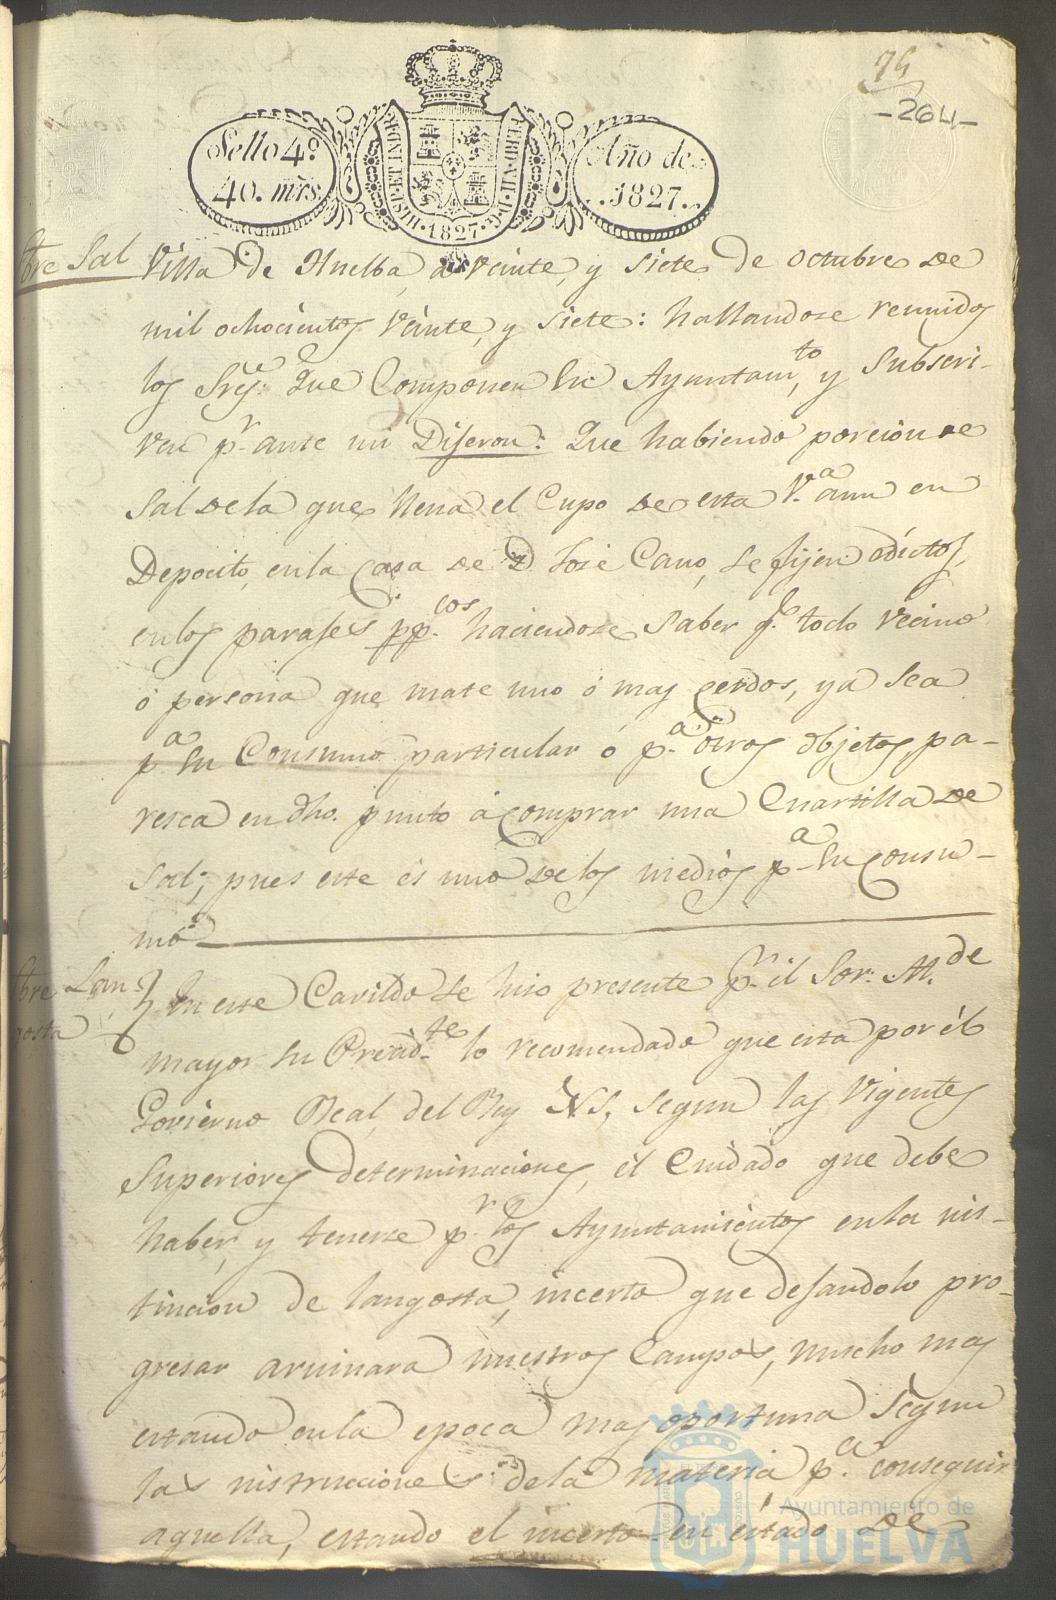 75
-264-
Sello 4º
40. mrs
HISP. ET IND. R.
FERD. VII. D. G.
1827
Año de
1827.
bre Sal
Villa de Huelba, a veinte, y siete de octubre de
mil ochocientos veinte, y siete: hallandose reunidos
los Sres. que Componen su Ayuntamto, y Subscri-
ven pr. ante mi Dijeron: Que habiendo porcion de
Sal de la que llena el Cupo de esta Va. aun en
Deposito, en la Casa de D José Cano, se fijen edictos,
en los parajes ppcos. haciendose saber qe. todo vecino
ó persona que mate uno ó mas Cerdos, ya sea
pa su Consumo particular ó pa. otros objetos pa-
resca en dho. punto á comprar una Cuartilla de
Sal; pues este es uno de los medios pa su consu-
mo
bre Lan-
gosta
En este Cavildo se hiso presente pr. el Sor. Alde
mayor su Presidte lo recomendado que esta por él
Govierno Real, del Rey N S, segun las Vigentes
Superiores determinaciones, el Cuidado que debe
haber, y tenerse pr. los Ayuntamientos en la ins-
tincion de langosta, incerto que dejandolo pro-
gresar aruinara nuestros Campos, mucho mas
estando en la epoca mas oportuna segun
las instrucciones de la materia pa. conseguir
aquella, estando el incerto en estado de
Ayuntamiento de
HUELVA